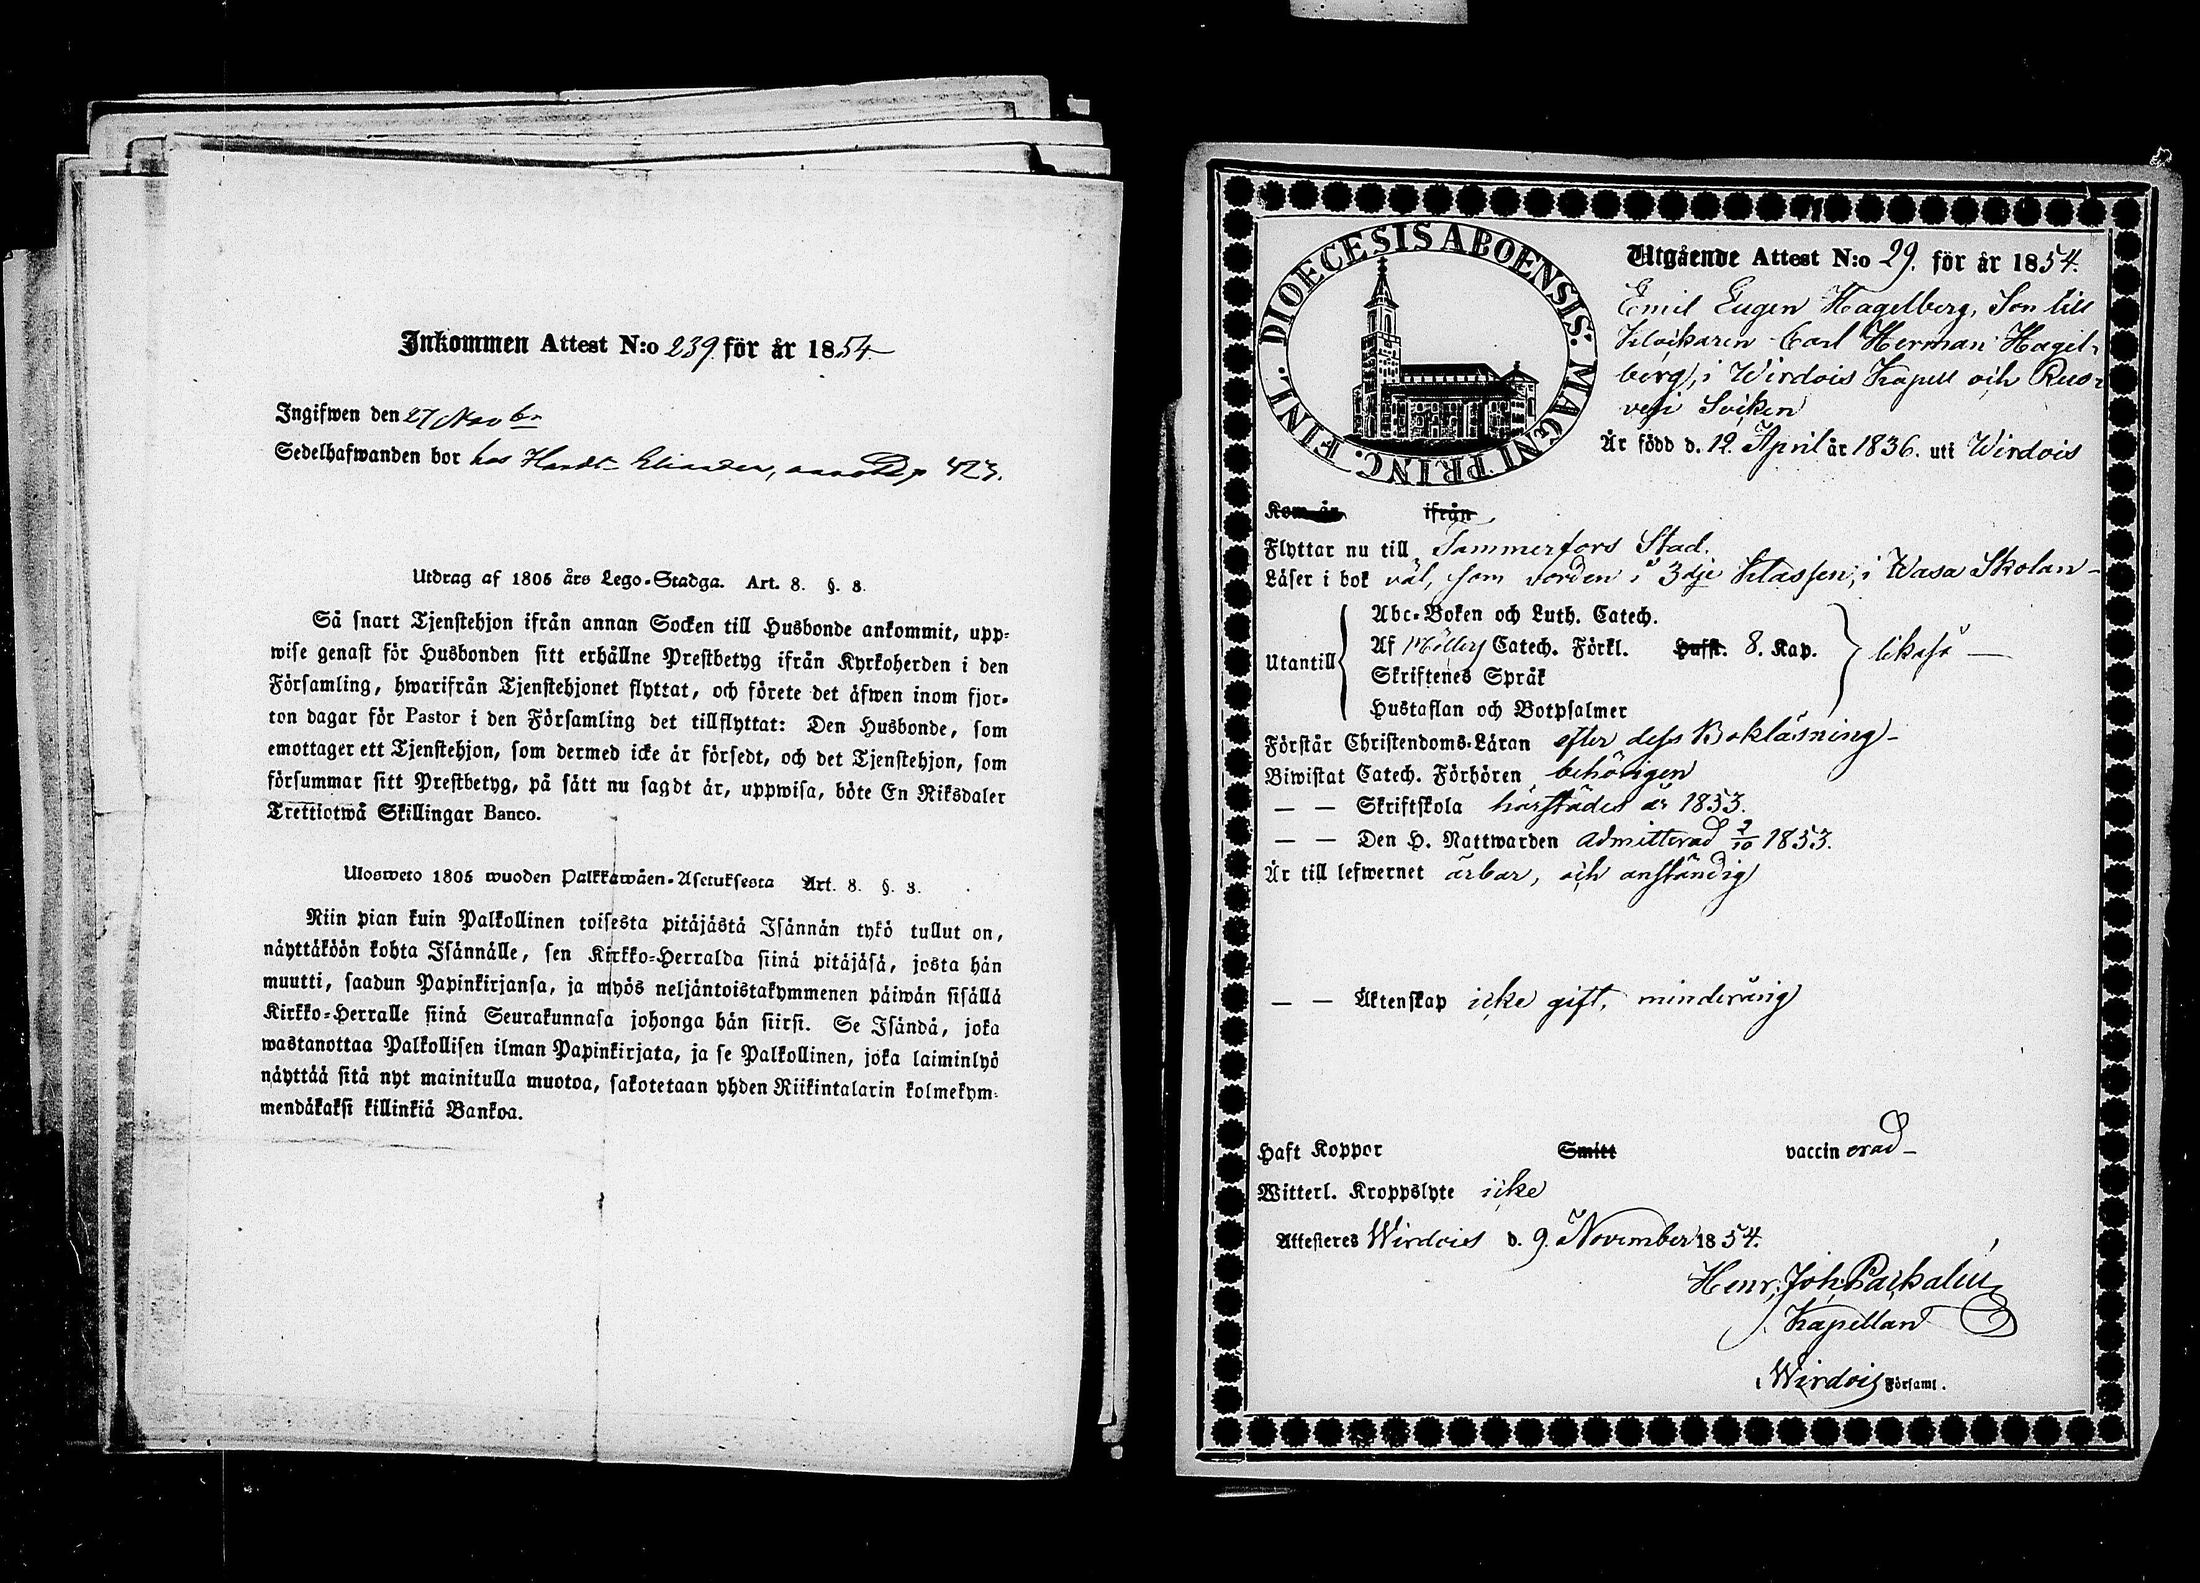 Inkommen Attest N:o 239 för år 1854
Ingifwen den 27 Novbr
Sedelhafwanden bor hos Handl. 423.
Utdrag af 1805 års Lego-Stadga. Art. 8. §. 8.
Så snart Tjenstehjon ifrån annan Socken till Husbonde ankommit, upp-
wise genast för Husbonden sitt erhållne Prestbetyg ifrån Kyrkoherden i den
Församling, hwarifrån Tjenstehjonet flyttat, och förete det äfwen inom fjor-
ton dagar för Pastor i den Församling det tillflyttat: Den Husbonde, som
emottager ett Tjenstehjon, som dermed icke är försedt, och det Tjenstehjon, som
försummar sitt Prestbetyg, på sätt nu sagdt är, uppwisa, böte En Riksdaler
Trettiotwå Skillingar Banco.
Ulosweto 1805 wuoden Palkkawäen-Asetuksesta Art. 8. §. 8.
Niin pian kuin Palkollinen toisesta pitäjästä Isännän tykö tullut on,
näyttäköön kohta Isännälle, sen Kirkko-Herralda siinä pitäjäsä, josta hän
muutti, saadun Papinkirjansa, ja myös neljäntoistakymmenen päiwän sisällä
Kirkko-Herralle siinä Seurakunnasa johonga hän siirsi. Se Isändä, joka
wastanottaa Palkollisen ilman Papinkirjata, ja se Palkollinen, joka laiminlyö
näyttää sitä nyt mainitulla muotoa, sakotetaan yhden Riikintalarin kolmekym-
mendäkaksi killinkiä Bankoa.
DIOECESIS ABOENSIS. MAGNI PRINC. FINL.
Utgående Attest N:o 29. för år 1854.
Emil Eugen Hagelberg, Son till
Klockaren Carl Herman Hagel-
berg, i Wirdois Kapell och Ruo-
vesi Socken
Är född d. 12. April år 1836. uti Wirdois
Kom år ifrån
Flyttar nu till Tammerfors Stad.
Läser i bok väl, som vorden i 3dje Klassen i Wasa Skolan-
Abc-Boken och Luth. Catech.
Utantill Af Möllers Catech. Förkl. Hufst. 8. Kap. likaså —
Skriftenes Språk
Hustaflan och Botpsalmer
Förstår Christendoms-Läran efter dess Bokläsning-
Biwistat Catech. Förhören behörigen
— — Skriftskola härstädes år 1853.
— — Den H. Nattwarden admitterad 2/10 1853.
Är till lefwernet ärbar, och anständig
— — Äktenskap icke gift, minderårig
Haft Koppor Smitt vaccinerad-
Witterl. Kroppslyte icke
Attesteras Wirdois d. 9. November 1854.
Henr. Joh.
Kapellan
i Wirdois Församl.